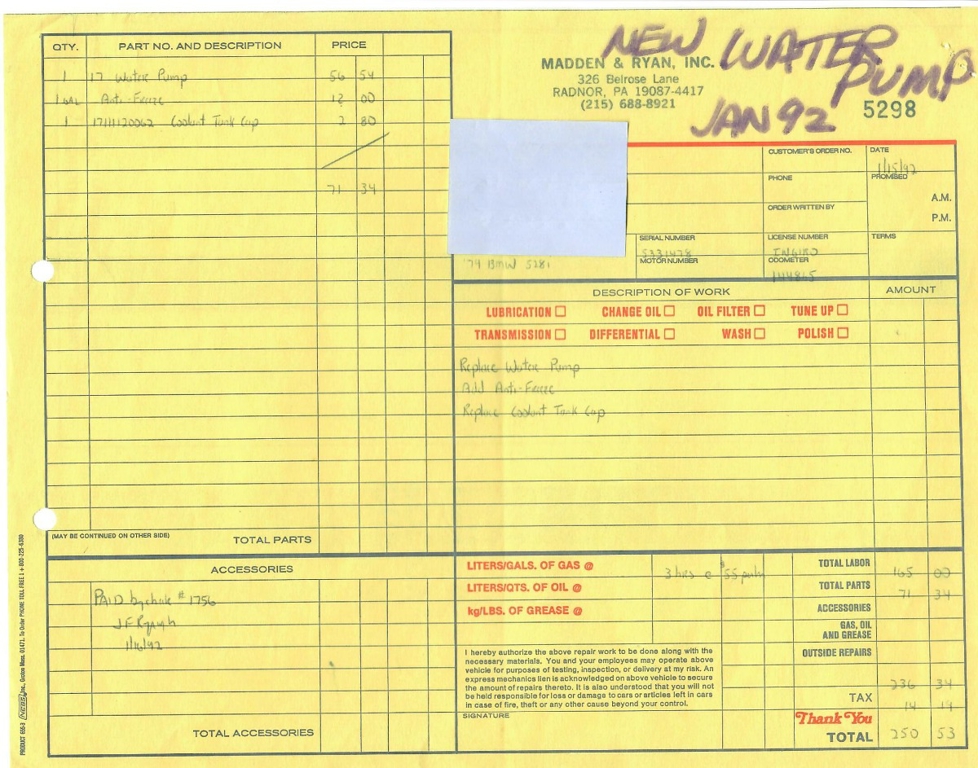 NEW WATER PUMP
JAN 92
MADDEN & RYAN, INC.
326 Belrose Lane
RADNOR, PA 19087-4417
(215) 688-8921
5298
QTY. PART NO. AND DESCRIPTION PRICE
1 17 Water Pump 56 54
1 GAL Anti-Freeze 12 00
1 17111120062 Coolant Tank Cap 2 80
71 34
CUSTOMER'S ORDER NO. DATE
1/15/92
PHONE PROMISED
A.M.
ORDER WRITTEN BY
P.M.
SERIAL NUMBER LICENSE NUMBER TERMS
5331478
MOTOR NUMBER ODOMETER
'79 BMW 528i
144865
DESCRIPTION OF WORK AMOUNT
LUBRICATION CHANGE OIL OIL FILTER TUNE UP
TRANSMISSION DIFFERENTIAL WASH POLISH
Replace Water Pump
Add Anti-Freeze
Replace Coolant Tank Cap
(MAY BE CONTINUED ON OTHER SIDE) TOTAL PARTS
ACCESSORIES
PAID by check # 1756
1/16/92
TOTAL ACCESSORIES
LITERS/GALS. OF GAS @
LITERS/QTS. OF OIL @
kg/LBS. OF GREASE @
3 hrs @ $55
TOTAL LABOR 165 00
TOTAL PARTS 71 34
ACCESSORIES
GAS, OIL
AND GREASE
OUTSIDE REPAIRS
236 34
TAX 14 19
Thank You
TOTAL 250 53
I hereby authorize the above repair work to be done along with the
necessary materials. You and your employees may operate above
vehicle for purposes of testing, inspection, or delivery at my risk. An
express mechanics lien is acknowledged on above vehicle to secure
the amount of repairs thereto. It is also understood that you will not
be held responsible for loss or damage to cars or articles left in cars
in case of fire, theft or any other cause beyond your control.
SIGNATURE
PRODUCT 658-3 NEBS Inc., Groton, Mass. 01471. To Order PHONE TOLL FREE 1 + 800-225-6380